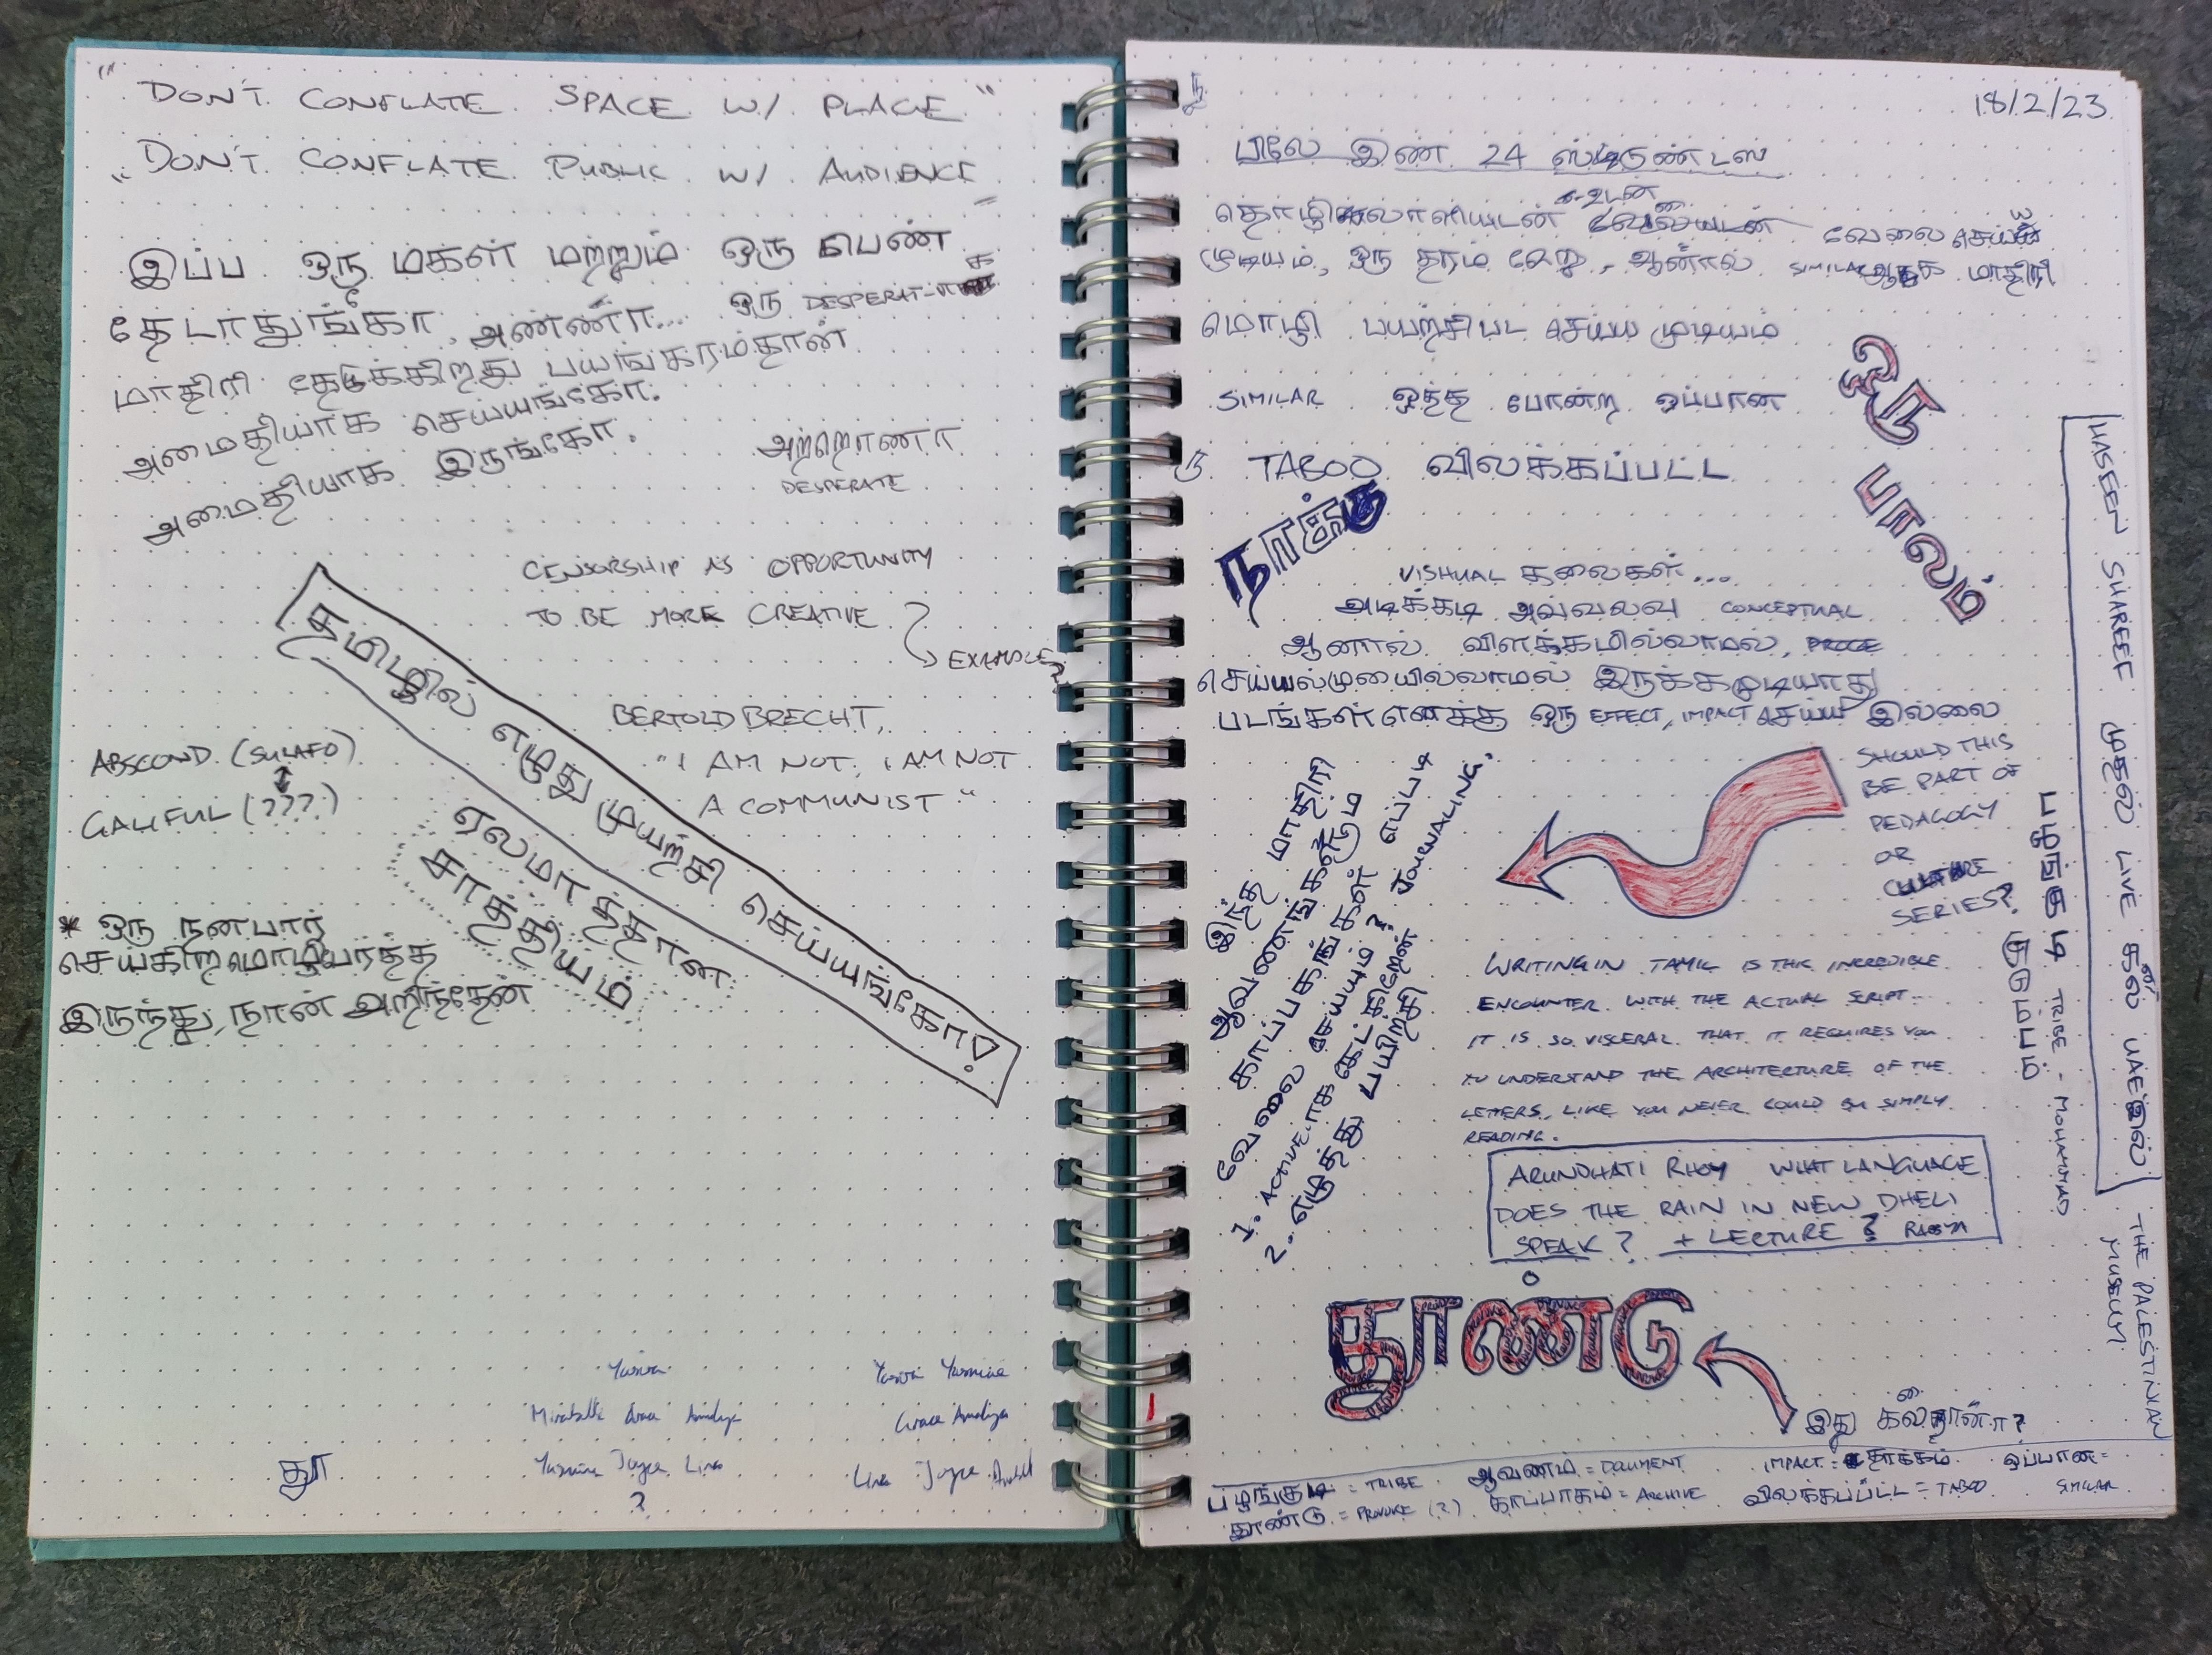 "DON'T CONFLATE SPACE W/ PLACE"
"DON'T CONFLATE PUBLIC W/ AUDIENCE
இப்ப ஒரு மகள் மற்றும் ஒரு பெண்
தேடாதுங்கோ, அண்ணா... ஒரு DESPERAT-ஆக
மாதிரி தேடுக்கிறது பயங்கரம்தான்
அமைதியாக செய்யுங்கோ.
அமைதியாக இருங்கோ.
அற்றொணா
DESPERATE
CENSORSHIP AS OPPORTUNITY
TO BE MORE CREATIVE
EXAMPLE?
தமிழில் எழுது முயற்சி செய்யுங்கோ!
ஏலமாத்தான்
சாத்தியம்
BERTOLD BRECHT,
"I AM NOT, I AM NOT
A COMMUNIST"
ABSCOND (SULAFO)
GALIFUL (???)
* ஒரு நன்பார்
செய்கிற மொழிபரத்த
இருந்து, நான் அறிந்தேன்
Yasmine
Grace Amaliya
Yasmine Joyce Lina
?
Lina Joyce
தூ
18/2/23
பிலே இண 24 ஸ்டுண்டஸ்
-உடன்
தொழிலாளியுடன் வேலை செய்ய
முடியும், ஒரு தரம் வேறு, ஆனால் SIMILAR ஆக மாதிரி
மொழி பயற்சிபட செய்ய முடியும்
SIMILAR ஒத்த போன்ற ஒப்பான
ஒரு பாலம்
TABOO விலக்கப்பட்ட
நாக்கு
VISHUAL கலைகள்...
அடிக்கடி அவ்வலவு CONCEPTUAL
ஆனால் விளக்கமில்லாமல்,
செய்யல்முயையில்லாமல் இருக்கமுடியாது
படங்கள் எனக்கு ஒரு EFFECT, IMPACT செய்ய இல்லை
இந்த மாதிரி
ஆவணங்களும்
காப்பகங்கள் எப்படி
வேலை செய்யும்?
1. ACTIVE-ஆக கேட்கிறேன்
2. எழுத்து பயிற்சி JOURNALING.
SHOULD THIS
BE PART OF
PEDAGOGY
OR
CULTURE
SERIES?
WRITING IN TAMIL IS THIS INCREDIBLE
ENCOUNTER WITH THE ACTUAL SCRIPT.
IT IS SO VISCERAL THAT IT REQUIRES YOU
TO UNDERSTAND THE ARCHITECTURE OF THE
LETTERS, LIKE YOU NEVER COULD BY SIMPLY
READING.
ARUNDHATI RHOY WHAT LANGUAGE
DOES THE RAIN IN NEW DHELI
SPEAK? + LECTURE?
பழங்குடி TRIBE - MOHAMMAD
குடும்பம்
HASEEN SHAREEF முதல் LIVE கலை UAEஇல்
THE PALESTINIAN
MUSEUM
தூண்டு
இது கலைதான்ா?
பழங்குடி = TRIBE ஆவணம் = DOCUMENT IMPACT = தாக்கம் ஒப்பான =
SIMILAR
தூண்டு = PROVOKE (?) காப்பாகம் = ARCHIVE விலக்கப்பட்ட = TABOO